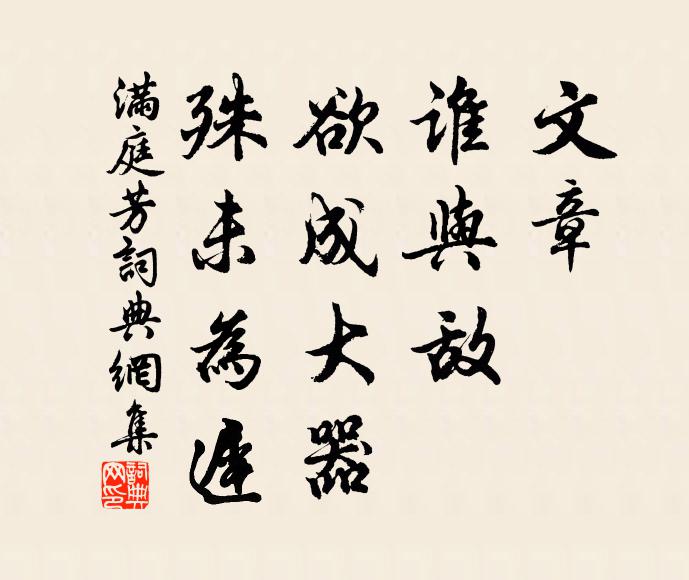 文章
誰與敌
欲成大器
殊未為遲
滿庭芳詞典網集
詞典网印